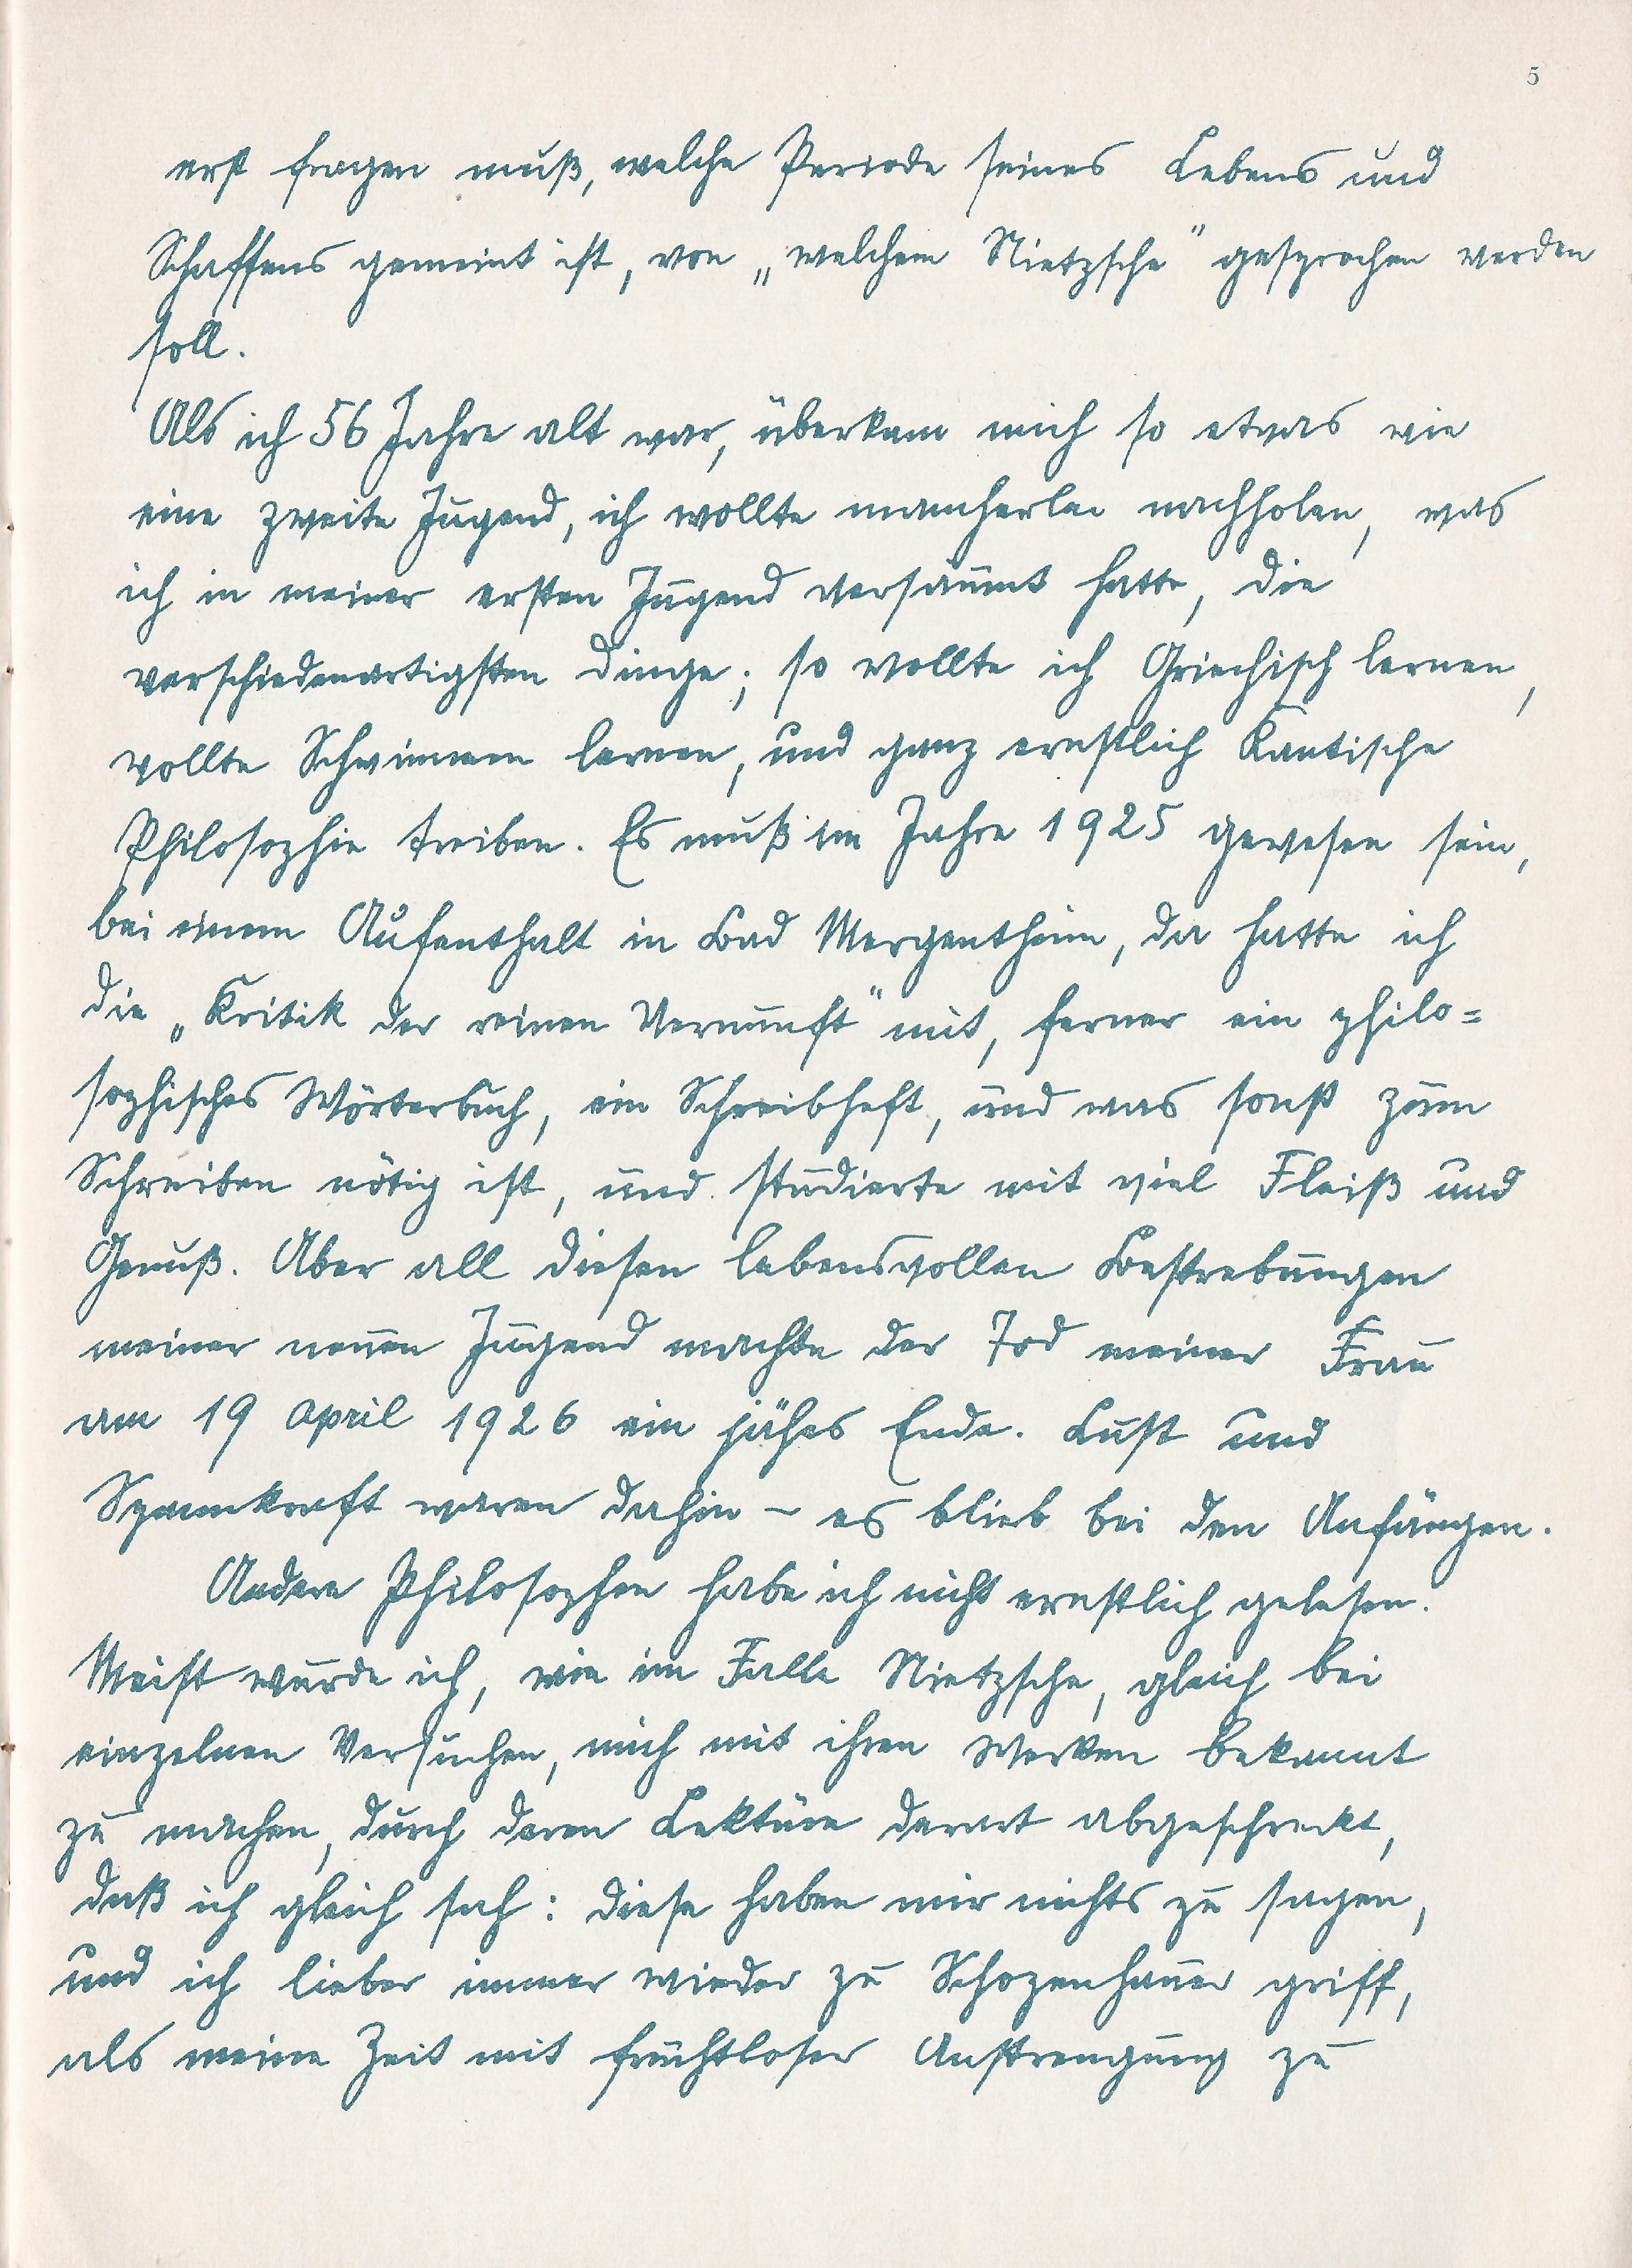 5
erst fragen muß, welche Periode seines Lebens und
Schaffens gemeint ist, von „welchem Nietzsche" gesprochen werden
soll.
Als ich 56 Jahre alt war, überkam mich so etwas wie
eine zweite Jugend, ich wollte mancherlei nachholen, was
ich in meiner ersten Jugend versäumt hatte, die
verschiedenartigsten Dinge; so wollte ich Griechisch lernen,
wollte Schwimmen lernen, und ganz ernstlich Kantische
Philosophie treiben. Es muß im Jahre 1925 gewesen sein,
bei einem Aufenthalt in Bad Mergentheim, da hatte ich
die „Kritik der reinen Vernunft" mit, ferner ein philo=
sophisches Wörterbuch, ein Schreibheft, und was sonst zum
Schreiben nötig ist, und studierte mit viel Fleiß und
Genuß. Aber all diesen lebensvollen Bestrebungen
meiner neuen Jugend machte der Tod meiner Frau
am 19 April 1926 ein jähes Ende. Lust und
Spannkraft waren dahin – es blieb bei den Anfängen.
Andere Philosophen habe ich nicht ernstlich gelesen.
Meist wurde ich, wie im Falle Nietzsche, gleich bei
einzelnen Versuchen, mich mit ihren Werken bekannt
zu machen, durch deren Lektüre derart abgeschreckt,
daß ich gleich sah: diese haben mir nichts zu sagen,
und ich lieber immer wieder zu Schopenhauer griff,
als meine Zeit mit fruchtloser Anstrengung zu